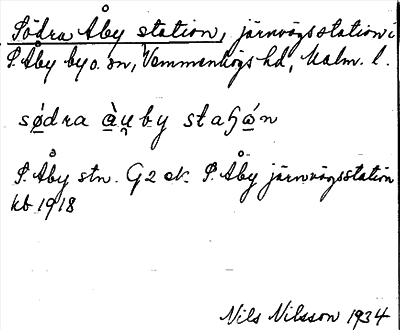 Södra Åby station, järnvägsstation i
S. Åby by o. sn, Vemmenhögs hd, Malm. l.
sǿdra àu̯by staɧǻn
S. Åby stn. G2 ek. S. Åby järnvägsstation
kb 1918
Nils Nilsson 1934